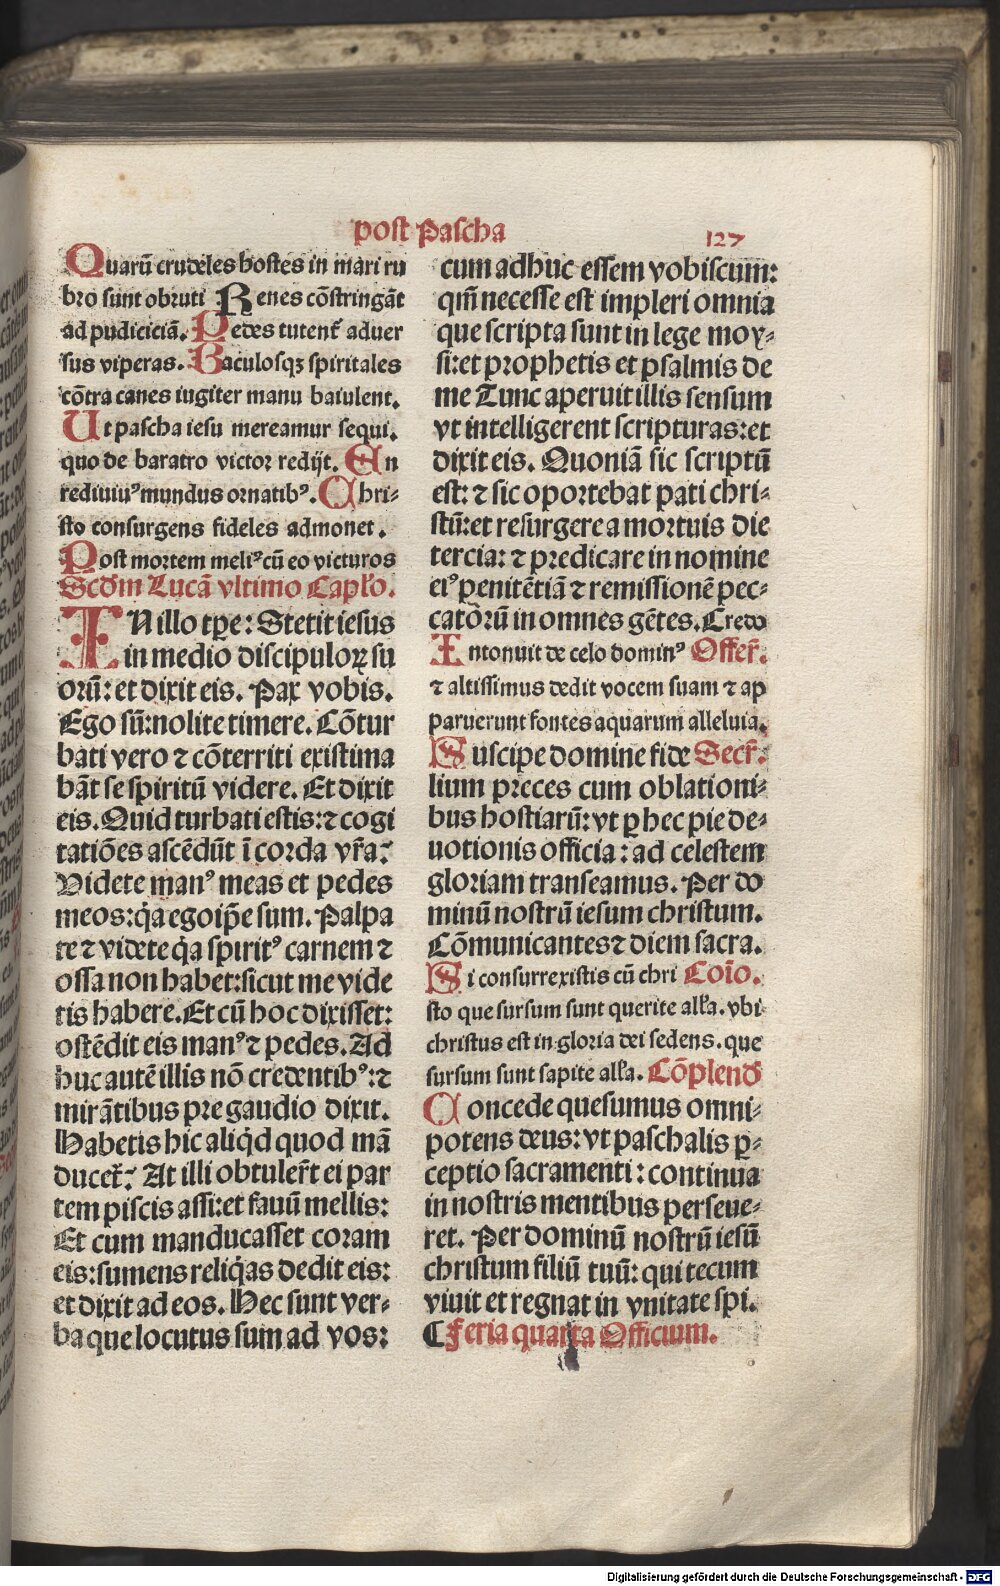 post Pascha
127
Quarū crudeles hostes in mari ru
bro sunt obruti Renes cōstringāt
ad pudiciciā. Pedes tutent᷑ aduer
sus viperas. Baculosqꝫ spiritales
cōtra canes iugiter manu baiulent.
Ut pascha iesu mereamur sequi.
quo de baratro victor redijt. En
rediuiuꝰ mundus ornatibꝰ. Chri⸗
sto consurgens fideles admonet.
Post mortem meliꝰ cū eo victuros
Scd̄m Lucā vltimo Capl̓o.
IN illo tꝑe: Stetit iesus
in medio discipuloꝝ su
orū: et dixit eis. Pax vobis.
Ego sū: nolite timere. Cōtur
bati vero ⁊ cōterriti existima
bāt se spiritū videre. Et dixit
eis. Quid turbati estis: ⁊ cogi
tatiōes ascēdūt ī corda vr̄a?
Videte manꝰ meas et pedes
meos: q̄a ego ip̄e sum. Palpa
te ⁊ videte q̄a spiritꝰ carnem ⁊
ossa non habet: sicut me vide
tis habere. Et cū hoc dixisset:
ostēdit eis manꝰ ⁊ pedes. Ad
huc autē illis nō credentibꝰ: ⁊
mirātibus pre gaudio dixit.
Habetis hic aliqd̓ quod mā
ducet᷑? At illi obtuler̄t ei par
tem piscis assi: et fauū mellis:
Et cum manducasset coram
eis: sumens reliq̄as dedit eis:
et dixit ad eos. Hec sunt ver⸗
ba que locutus sum ad vos:
cum adhuc essem vobiscum:
qm̄ necesse est impleri omnia
que scripta sunt in lege moy⸗
si: et prophetis et psalmis de
me Tunc aperuit illis sensum
vt intelligerent scripturas: et
dixit eis. Quoniā sic scriptū
est: ⁊ sic oportebat pati chri⸗
stū: et resurgere a mortuis die
tercia: ⁊ predicare in nomine
eiꝰ penitētiā ⁊ remissionē pec⸗
catorū in omnes gētes. Credo
Intonuit de celo dominꝰ Offer̄.
⁊ altissimus dedit vocem suam ⁊ ap
paruerunt fontes aquarum alleluia.
Suscipe domine fide Secr̄.
lium preces cum oblationi⸗
bus hostiarū: vt ꝑ hec pie de⸗
uotionis officia: ad celestem
gloriam transeamus. Per do
minū nostrū iesum christum.
Cōmunicantes ⁊ diem sacra.
Si consurrexistis cū chri Coīo.
sto que sursum sunt querite all̓a. vbi
christus est in gloria dei sedens. que
sursum sunt sapite all̓a. Cōplend̄
Concede quesumus omni⸗
potens deus: vt paschalis ꝑ⸗
ceptio sacramenti: continua
in nostris mentibus perseue⸗
ret. Per dominū nostrū iesū
christum filiū tuū: qui tecum
viuit et regnat in vnitate spi.
⸿ Feria quarta Officium.
Digitalisierung gefördert durch die Deutsche Forschungsgemeinschaft - DFG